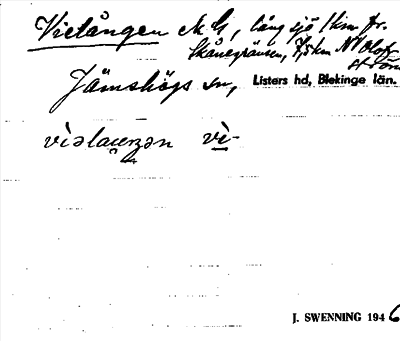 Vielången N G, lång sjö 1 km fr.
Skånegränsen, 7,5 km NV Olof-
ström
Jämshögs sn, Listers hd, Blekinge län.
J. SWENNING 1946